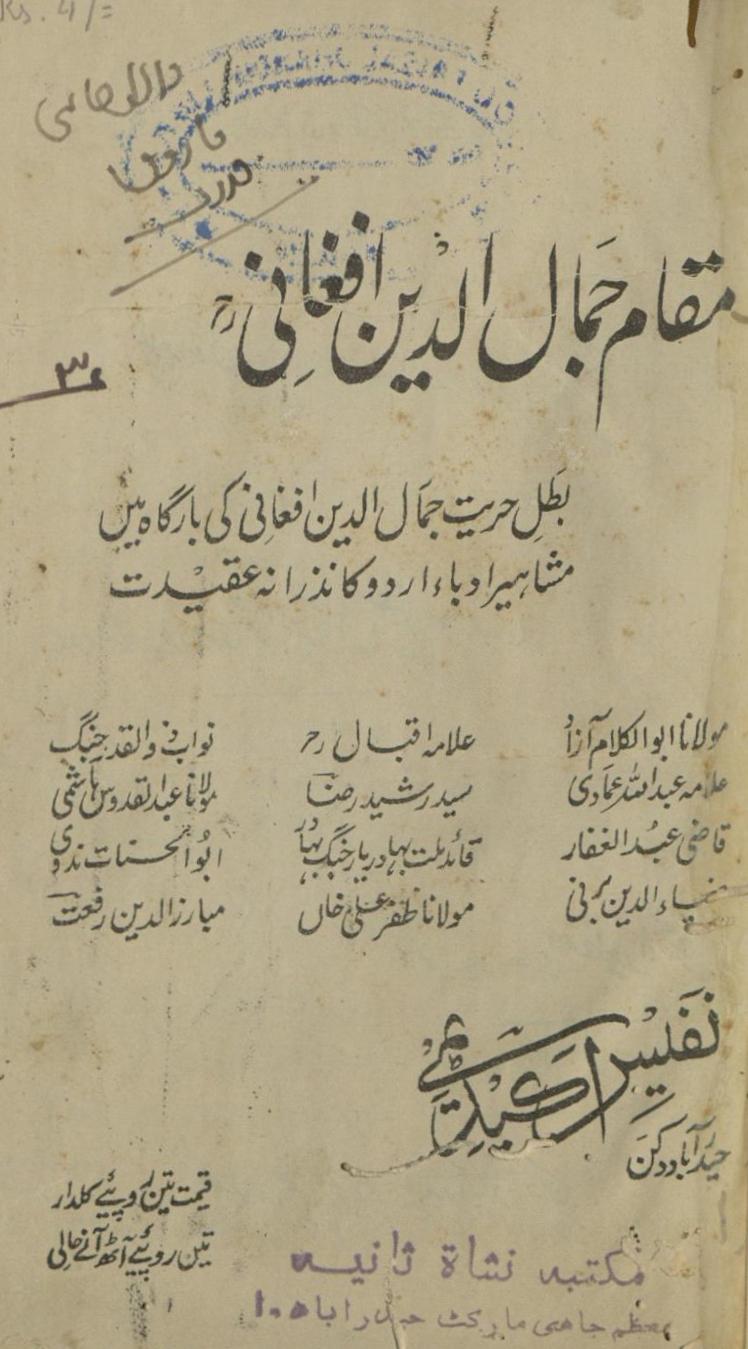 Rs. 4/=
مقام جمال الدین افغانیؒ
۳؍
بطلِ حریت جمال الدین افغانی کی بارگاہ میں
مشاہیر ادباء اردو کا نذرانہ عقیدت
مولانا ابوالکلام آزاد علامہ اقبال رح نواب ذوالقدر جنگ
علامہ عبداللہ عمادی سید رشید رضا مولانا عبدالقدوس ہاشمی
قاضی عبدالغفار قائد ملت بہادر یار جنگ بہادر ابوالحسنات ندوی
ضیاء الدین برنی مولانا ظفر علی خاں مبارزالدین رفعت
نفیس اکیڈیمی
حیدرآباد دکن
قیمت تین روپیے کلدار
تین روپیے آٹھ آنے حالی
مکتبہ نشاۃ ثانیہ
معظم جاہی مارکٹ حیدراباد ۱۰